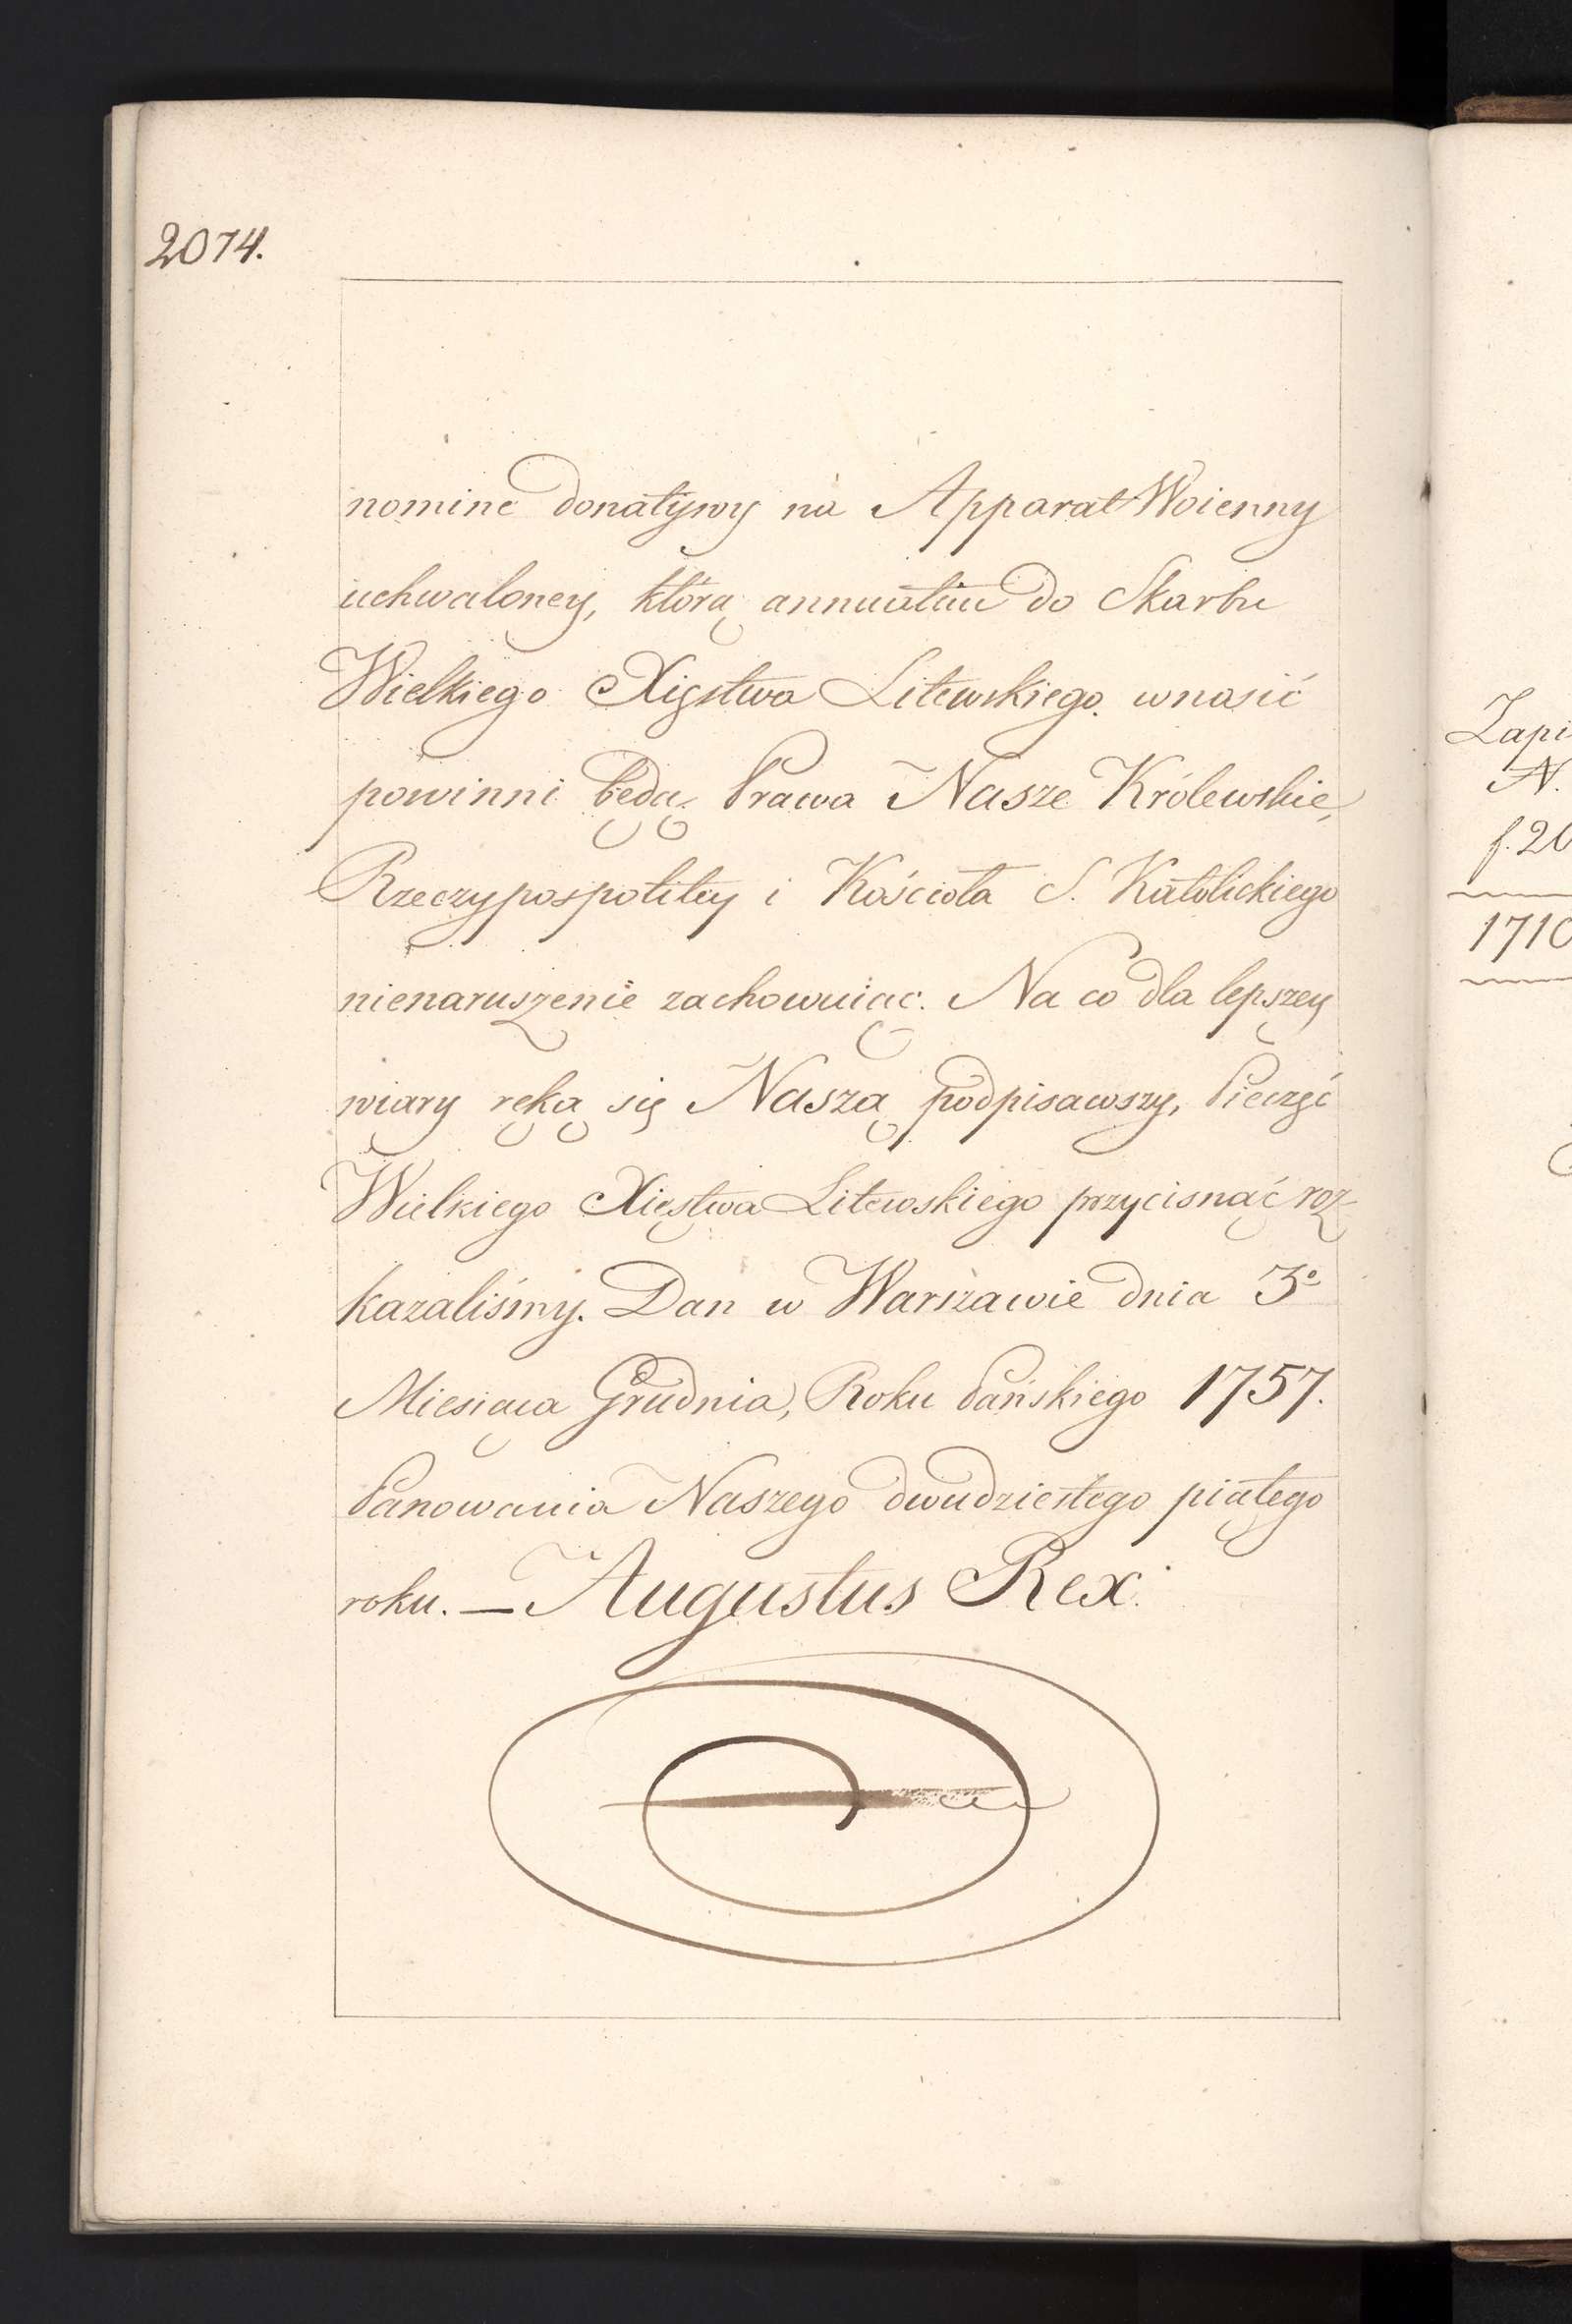 2074.
nomine donatywy na Apparat Woienny
uchwaloney, którą annuatim do Skarbu
Wielkiego Xięstwa Litewskiego wnosić
powinni będą, Prawa Nasze Królewskie,
Rzeczypospolitey i Kościoła S. Katolickiego
nienaruszenie zachowuiąc. Na co dla lepszey
wiary ręką się Naszą podpisawszy, Pieczęć
Wielkiego Xięstwa Litewskiego przycisnąć roz-
kazaliśmy. Dan w Warszawie dnia 3º
Miesiąca Grudnia, Roku Pańskiego 1757.
Panowania Naszego dwudziestego piątego
roku. — Augustus Rex.
Zapi
N.
f. 20
1710